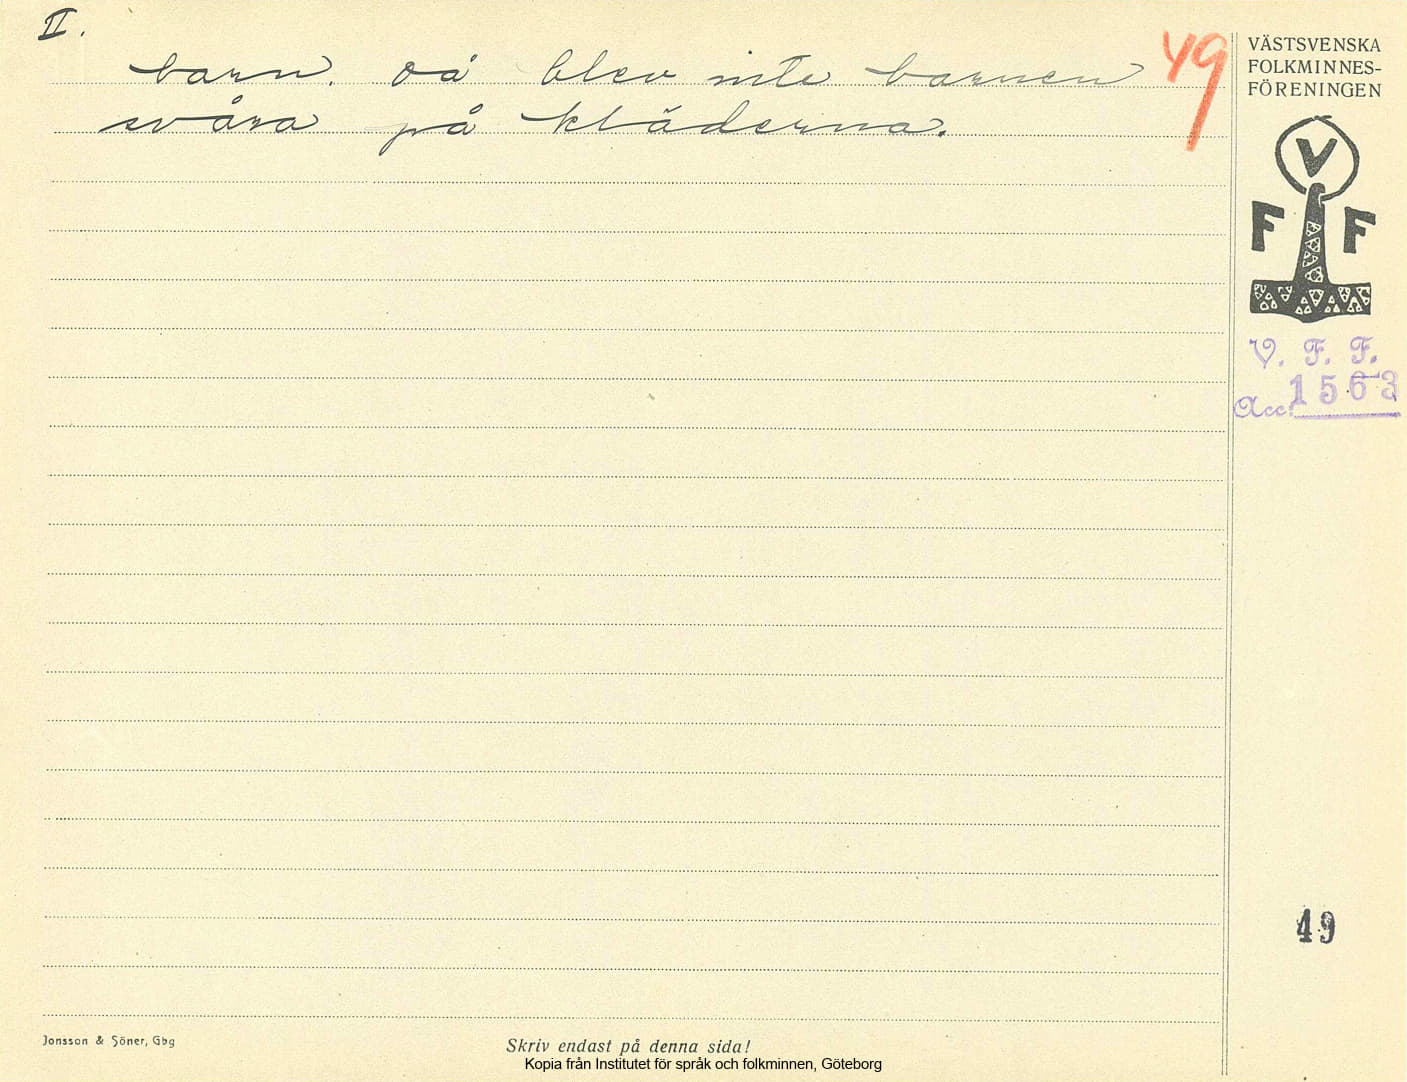 II.
barn. Då blev inte barnen
svåra på kläderna.
49
VÄSTSVENSKA
FOLKMINNES-
FÖRENINGEN
V
F F
V. F. F.
Acc. 1563
49
Jonsson & Söner, Gbg
Skriv endast på denna sida!
Kopia från Institutet för språk och folkminnen, Göteborg